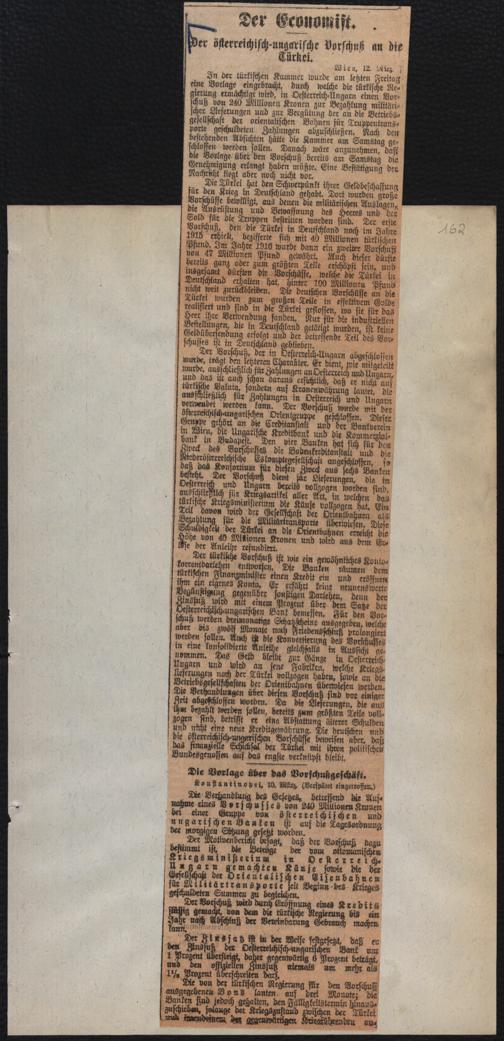 Der Economist.
Der österreichisch-ungarische Vorschuß an die
Türkei.
Wien, 12. März.
In der türkischen Kammer wurde am letzten Freitag
eine Vorlage eingebracht, durch welche die türkische Re-
gierung ermächtigt wird, in Oesterreich-Ungarn einen Vor-
schuß von 240 Millionen Kronen zur Bezahlung militäri-
scher Lieferungen und zur Vergütung der an die Betriebs-
gesellschaft der orientalischen Bahnen für Truppentrans-
porte geschuldeten Zahlungen abzuschließen. Nach den
bestehenden Absichten hätte die Kammer am Samstag ge-
schlossen werden sollen. Danach wäre anzunehmen, daß
die Vorlage über den Vorschuß bereits am Samstag die
Genehmigung erlangt haben müßte. Eine Bestätigung der
Nachricht liegt aber noch nicht vor.
Die Türkei hat den Schwerpunkt ihrer Geldbeschaffung
für den Krieg in Deutschland gehabt. Dort wurden große
Vorschüsse bewilligt, aus denen die militärischen Auslagen,
die Ausrüstung und Bewaffnung des Heeres und der
Sold für die Truppen bestritten worden sind. Der erste
Vorschuß, den die Türkei in Deutschland noch im Jahre
1915 erhielt, bezifferte sich mit 40 Millionen türkischen
Pfund. Im Jahre 1916 wurde dann ein zweiter Vorschuß
von 47 Millionen Pfund gewährt. Auch dieser dürfte
bereits ganz oder zum größten Teile erschöpft sein, und
insgesamt dürften die Vorschüsse, welche die Türkei in
Deutschland erhalten hat, hinter 100 Millionen Pfund
nicht weit zurückbleiben. Die deutschen Vorschüsse an die
Türkei wurden zum großen Teile in effektivem Golde
realisiert und sind in die Türkei geflossen, wo sie für das
Heer ihre Verwendung fanden. Nur für die industriellen
Bestellungen, die in Deutschland getätigt wurden, ist keine
Geldübersendung erfolgt und der betreffende Teil des Vor-
schusses ist in Deutschland geblieben.
Der Vorschuß, der in Oesterreich-Ungarn abgeschlossen
wurde, trägt den letzteren Charakter. Er dient, wie mitgeteilt
wurde, ausschließlich für Zahlungen an Oesterreich und Ungarn,
und das ist auch schon daraus ersichtlich, daß er nicht auf
türkische Valuta, sondern auf Kronenwährung lautet, die
ausschließlich für Zahlungen in Oesterreich und Ungarn
verwendet werden kann. Der Vorschuß wurde mit der
österreichisch-ungarischen Orientgruppe geschlossen. Dieser
Gruppe gehört an die Creditanstalt und der Bankverein
in Wien, die Ungarische Kreditbank und die Kommerzial-
bank in Budapest. Den vier Banken hat sich für den
Zweck des Vorschusses die Bodenkreditanstalt und die
Niederösterreichische Eskomptegesellschaft angeschlossen, so
daß das Konsortium für diesen Zweck aus sechs Banken
besteht. Der Vorschuß dient für Lieferungen, die in
Oesterreich und Ungarn bereits vollzogen worden sind,
ausschließlich für Kriegsartikel aller Art, in welchen das
türkische Kriegsministerium die Käufe vollzogen hat. Ein
Teil davon wird der Gesellschaft der Orientbahnen als
Bezahlung für die Militärtransporte überwiesen. Diese
Schuldigkeit der Türkei an die Orientbahnen erreicht die
Höhe von 40 Millionen Kronen und wird aus dem Er-
löse der Anleihe refundiert.
Der türkische Vorschuß ist wie ein gewöhnliches Konto-
korrentdarlehen entworfen. Die Banken räumen dem
türkischen Finanzminister einen Kredit ein und eröffnen
ihm ein eigenes Konto. Er erfährt keine nennenswerte
Begünstigung gegenüber sonstigen Darlehen, denn der
Zinsfuß wird mit einem Prozent über dem Satze der
Oesterreichisch-ungarischen Bank bemessen. Für den Vor-
schuß werden dreimonatige Schatzscheine ausgegeben, welche
aber bis zwölf Monate nach Friedensschluß prolongiert
werden sollen. Auch ist die Konvertierung des Vorschusses
in eine konsolidierte Anleihe gleichfalls in Aussicht ge-
nommen. Das Geld bleibt zur Gänze in Oesterreich-
Ungarn und wird an jene Fabriken, welche Kriegs-
lieferungen nach der Türkei vollzogen haben, sowie an die
Betriebsgesellschaften der Orientbahnen überwiesen werden.
Die Verhandlungen über diesen Vorschuß sind vor einiger
Zeit abgeschlossen worden. Da die Lieferungen, die aus
ihm bezahlt werden sollen, bereits zum größten Teile voll-
zogen sind, betrifft er eine Abstattung älterer Schulden
und nicht eine neue Kreditgewährung. Die deutschen und
die österreichisch-ungarischen Vorschüsse beweisen aber, daß
das finanzielle Schicksal der Türkei mit ihren politischen
Bundesgenossen auf das engste verknüpft bleibt.
Die Vorlage über das Vorschußgeschäft.
Konstantinopel, 10. März. (Verspätet eingetroffen.)
Die Verhandlung des Gesetzes, betreffend die Auf-
nahme eines Vorschusses von 240 Millionen Kronen
bei einer Gruppe von österreichischen und
ungarischen Banken ist auf die Tagesordnung
der morgigen Sitzung gesetzt worden.
Der Motivenbericht besagt, daß der Vorschuß dazu
bestimmt ist, die Beträge der vom ottomanischen
Kriegsministerium in Oesterreich-
Ungarn gemachten Käufe sowie die der
Gesellschaft der Orientalischen Eisenbahnen
für Militärtransporte seit Beginn des Krieges
geschuldeten Summen zu begleichen.
Der Vorschuß wird durch Eröffnung eines Kredits
flüssig gemacht, von dem die türkische Regierung bis ein
Jahr nach Abschluß der Vereinbarung Gebrauch machen
kann.
Der Zinsfuß ist in der Weise festgesetzt, daß er
den Zinsfuß der Oesterreichisch-ungarischen Bank um
1 Prozent übersteigt, daher gegenwärtig 6 Prozent beträgt,
und den offiziellen Zinsfuß niemals um mehr als
1½ Prozent überschreiten darf.
Die von der türkischen Regierung für den Vorschuß
ausgegebenen Bons lauten auf drei Monate; die
Banken sind jedoch gehalten, den Fälligkeitstermin hinaus-
zuschieben, solange der Kriegszustand zwischen der Türkei
und irgendeinem der gegenwärtigen Kriegführenden an-
162